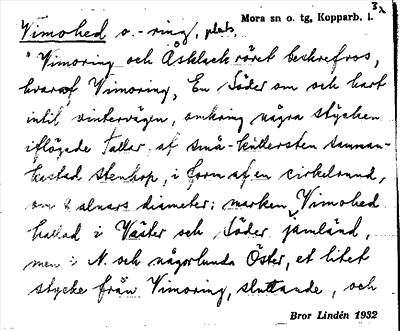 Mora sn o. tg, Kopparb. l.
3x
Vimohed o. -ring, plats.
"Vimoring och Åsklackröret beskrefvos,
hvaraf Vimoring, En Söder om och hart
intil vintervägen, omkring några stycken
iflögade Tallar, af små-kullersten samman-
kastad stenhop, i form af en cirkelrund,
om 8 alnars diameter; marken, Vimohed
kallad i Väster och Söder jämländ,
men i N. och någorlunda Öster, et litet
stycke från Vimoring, sluttande, och
Bror Lindén 1932